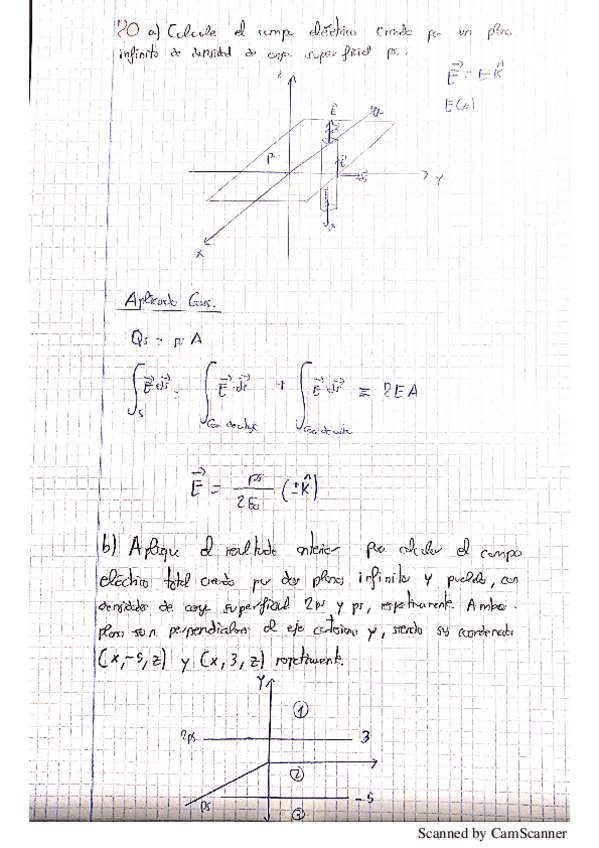 20 a) Calcule el campo eléctrico creado por un plano
infinito de densidad de carga superficial ρs.
E⃗ = E k̂
E(z)
z
E⃗
ρs
Y
X
Aplicando Gauss.
Qs = ρs A
∫s E⃗·ds⃗ = ∫ E⃗·ds⃗ + ∫ E⃗·ds⃗ = 2EA
E⃗ = ρs / 2ε₀ (±k̂)
b) Aplique el resultado anterior para calcular el campo
eléctrico total creado por dos planos infinitos y paralelos, con
densidades de carga superficial 2ρs y ρs, respectivamente. Ambos
planos son perpendiculares al eje cartesiano y, siendo sus coordenadas
(x,-5,z) y (x,3,z) respectivamente.
Y
①
2ρs 3
②
ρs -5
③
Scanned by CamScanner